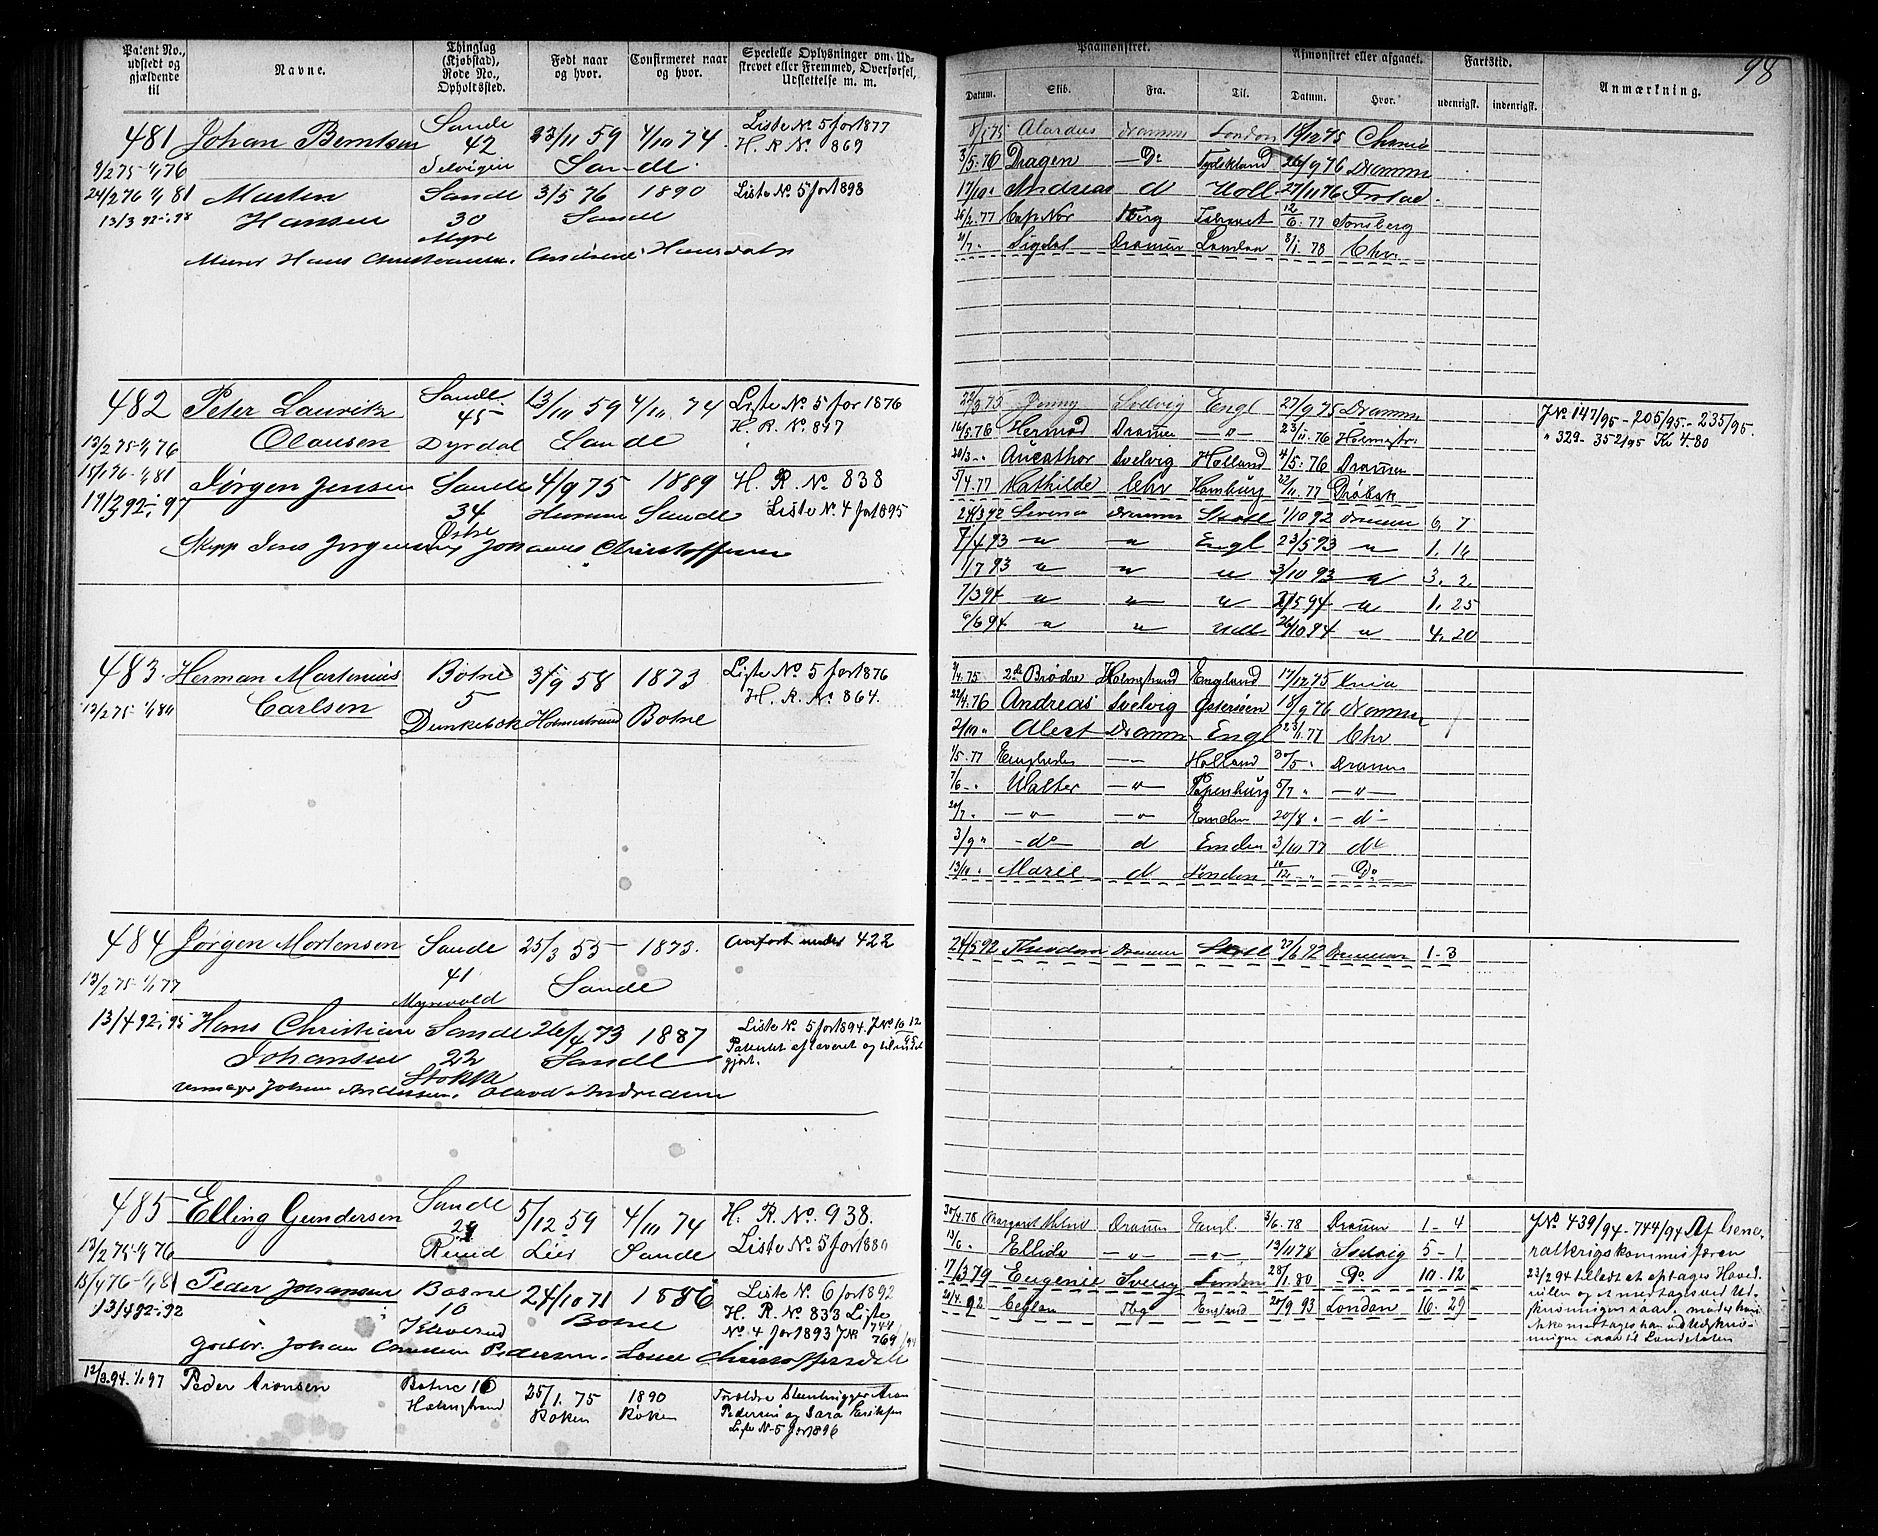 98
Patent No., udstedt og gjældende til
Navne.
Thinglag (Kjøbstad), Rode No., Opholtssted.
Født naar og hvor.
Confirmeret naar og hvor.
Specielle Oplysninger om Udskrevet eller Fremmed, Overførsel, Udslettelse m. m.
Paamønstret.
Afmønstret eller afgaaet.
Fartstid.
Anmærkning.
Datum. Skib. Fra. Til. Datum. Hvor. udenrigsk. indenrigsk.
481 Johan Berntsen Sande 23/11 59 4/10 74 Liste No 5 for 1877
42 H. R. No 869
9/2 75 - 1/1 76 Selvigen Sande
24/2 76 1/1 81 Martin Sande 3/5 76 1890 Liste No 5 for 1898
13/3 92 - 98 Hansen 30 Sande
Myre
Murer Hans Andrine Hansdatr
8/1 75 Alardus Dramm London 18/12 75 Chania
3/5 76 Dragen - Do Tydskland 26/9 76 Dramm
17/10 " Andreas d Holl 27/11 76
26/2 77 Cap Nor Tberg 12/6 77 Tønsberg
21/7 " Sigdal Dramm London 8/1 78 Chr.
482 Peter Lauritz Sande 13/10 59 4/10 74 Liste No 5 for 1876
45 H. R. No 897
13/2 75 - 1/1 76 Olausen Dyrdal Sande
15/1 76 - 1/1 81 Jørgen Jensen Sande 4/9 75 1889 H. R. No 838
19/3 92 - 97 34 Hurum Sande Liste No 4 for 1895
Østre
Skipp Jens Jørgensen, Johanne Christoffersen
22/3 75 Jenny Svelvig Engl 27/9 75 Dramm JNo 147/95 - 205/95 - 235/95
16/5 76 Hermod Dramm - " - 23/11 76 Holmestr. " 329 - 352/95 Kr 4.80
20/3 - " Aucathor Svelvig Holland 4/5 76 Drammen
5/4 77 Mathilde Chr Hamburg 22/11 77 Drøbak
24/3 92 Severia Dramm Skotl 1/10 92 Drammen 6, 7
7/4 93 " " Engl 23/5 93 " 1, 16
1/7 93 " " " 3/10 93 " 3, 2
7/3 94 " " " 21/5 94 " 1, 25
6/6 94 " " Holl 26/10 94 " 4, 20
483 Herman Martinius Botne 3/9 58 1873 Liste No 5 for 1876
Carlsen 5 H. R. No 864.
13/2 75 - 1/1 80 Dunkebek Holmestrand Botne
3/4 75 2de Brødre Holmestrand England 17/12 75 Xnia
22/4 76 Andreas Svelvig Østersøen 18/9 76 Drammen
2/10 " Alert Dramm Engl 23/1 77 Chr
1/5 77 - - Holland 30/5 " Drammen
7/6 - " Walter - " - Papenburg 5/7 " - " -
20/7 " - " - - " - Emden 20/8 " - do -
3/9 " - do - d Emden 3/10 77 do
13/10 " Marie d London 10/12 - " - Do
484 Jørgen Mortensen Sande 25/3 55 1873. Anført under 422
41
13/2 75 - 1/1 77 Myrevold Sande
13/4 92 - 95 Hans Christian Sande 26/4 73 1887 Liste No 5 for 1894. JNo 1012/95
Johansen 22 Sande Patentet afleveret og tilintetgjort.
Stokke
24/5 92 Theodora Drammen Skotl 27/6 92 Drammen 1 - 3
485 Elling Gundersen Sande 5/12 59 4/10 74 H. R. No. 938.
29 Liste No 5 for 1880
13/2 75 - 1/1 76 Ruud Lier Sande
15/4 76 - 1/1 81 Peder Johansen Botne 24/10 71 1886 Liste No 6 for 1892
13/4 92 - 92 10 Botne H. R. No 833 Liste
Kleverud No 4 for 1893 JNo 744 769/94
Gaardbr. Johan Christian Pedersen, Christoffersdtr
12/9 94 - 1/1 97 Peder Aronsen Botne 10 25/1 75 1890 Forældre Stenhugger Aron
Holmestrand Røken Røken Pedersen og Sara Eriksen
Liste No 5 for 1896
30/4 78 Margaret Dramm Engl. 3/6 78 Dramm 1 - 4 JNo 439/94 - 744/94 Af Gene-
13/6 " Ellida - " - - " - 12/11 78 Svelvig 5 - 1 ralkrigskommissæren
17/3 79 Eugenie London 28/1 80 Do 10 - 12 23/2 94 tilladt at optages Hoved-
20/4 92 Ceylon Tbg England 20/9 93 London 16 - 29 rullen og at medtages ved Ud-
skrivningen i aar, møder han
ikke medtages han ved Udskriv-
ningen i aar til Landetaten